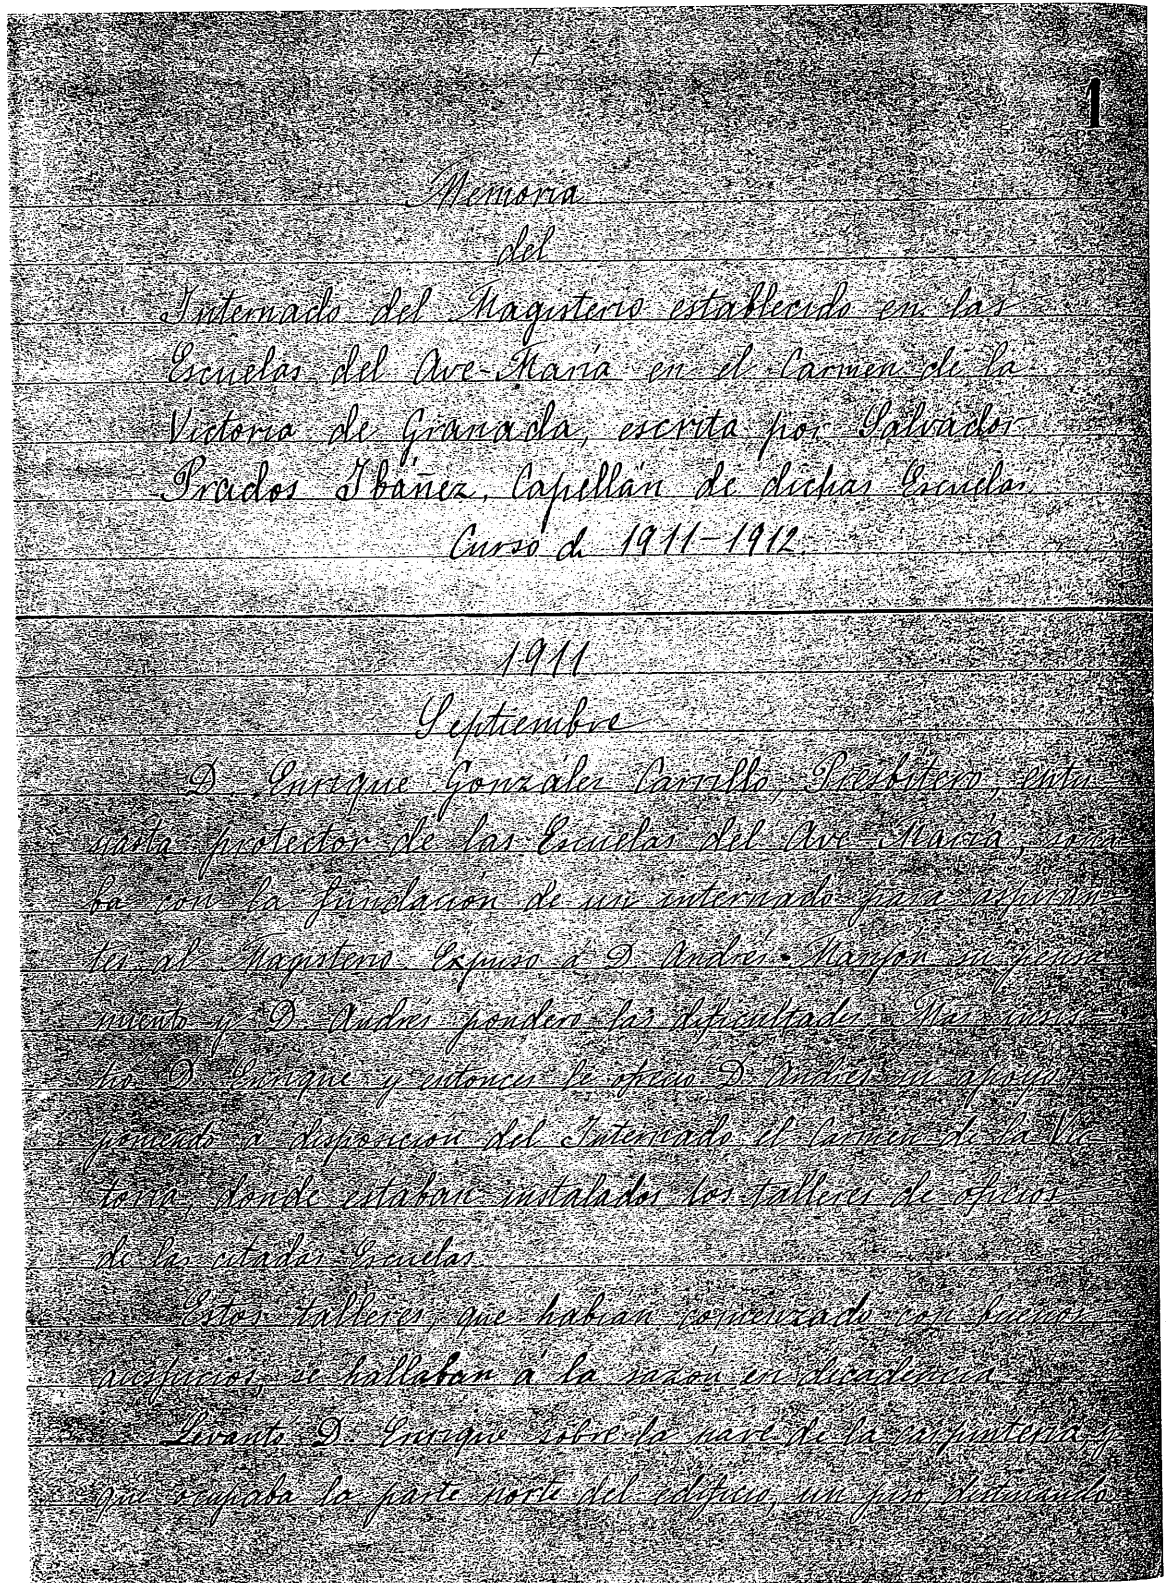 +
1
Memoria
del
Internado del Magisterio establecido en las
Escuelas del Ave-María en el Carmen de la
Victoria de Granada, escrita por Salvador
Prados Ibáñez, Capellán de dichas Escuelas.
Curso de 1911-1912.
1911
Septiembre
D. Enrique González Carrillo, Presbítero, entu-
siasta protector de las Escuelas del Ave-María, soña-
ba con la fundación de un internado para aspiran-
tes al Magisterio. Expuso á D. Andrés Manjón su pensa-
miento y D. Andrés ponderó las dificultades. Mas insis-
tió D. Enrique y entonces le ofreció D. Andrés su apoyo,
poniendo a disposición del Internado el Carmen de la Vic-
toria, donde estaban instalados los talleres de oficios
de las citadas Escuelas.
Estos talleres, que habían comenzado con buenos
auspicios, se hallaban á la sazón en decadencia.
Levantó D. Enrique sobre la nave de la carpintería, y
que ocupaba la parte norte del edificio, un piso, destinando